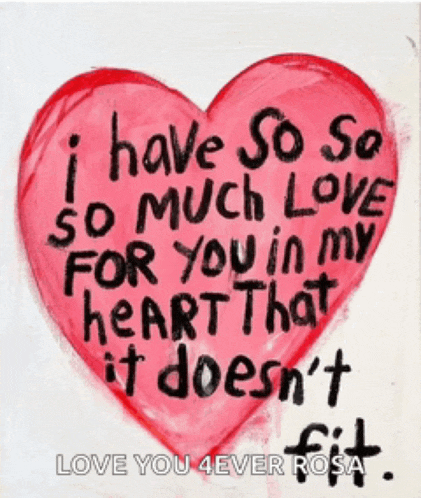 i haVe SO SO
SO MUCh LOVE
FOR YOU in my
heART That
it doesn't
fit.
LOVE YOU 4EVER ROSA